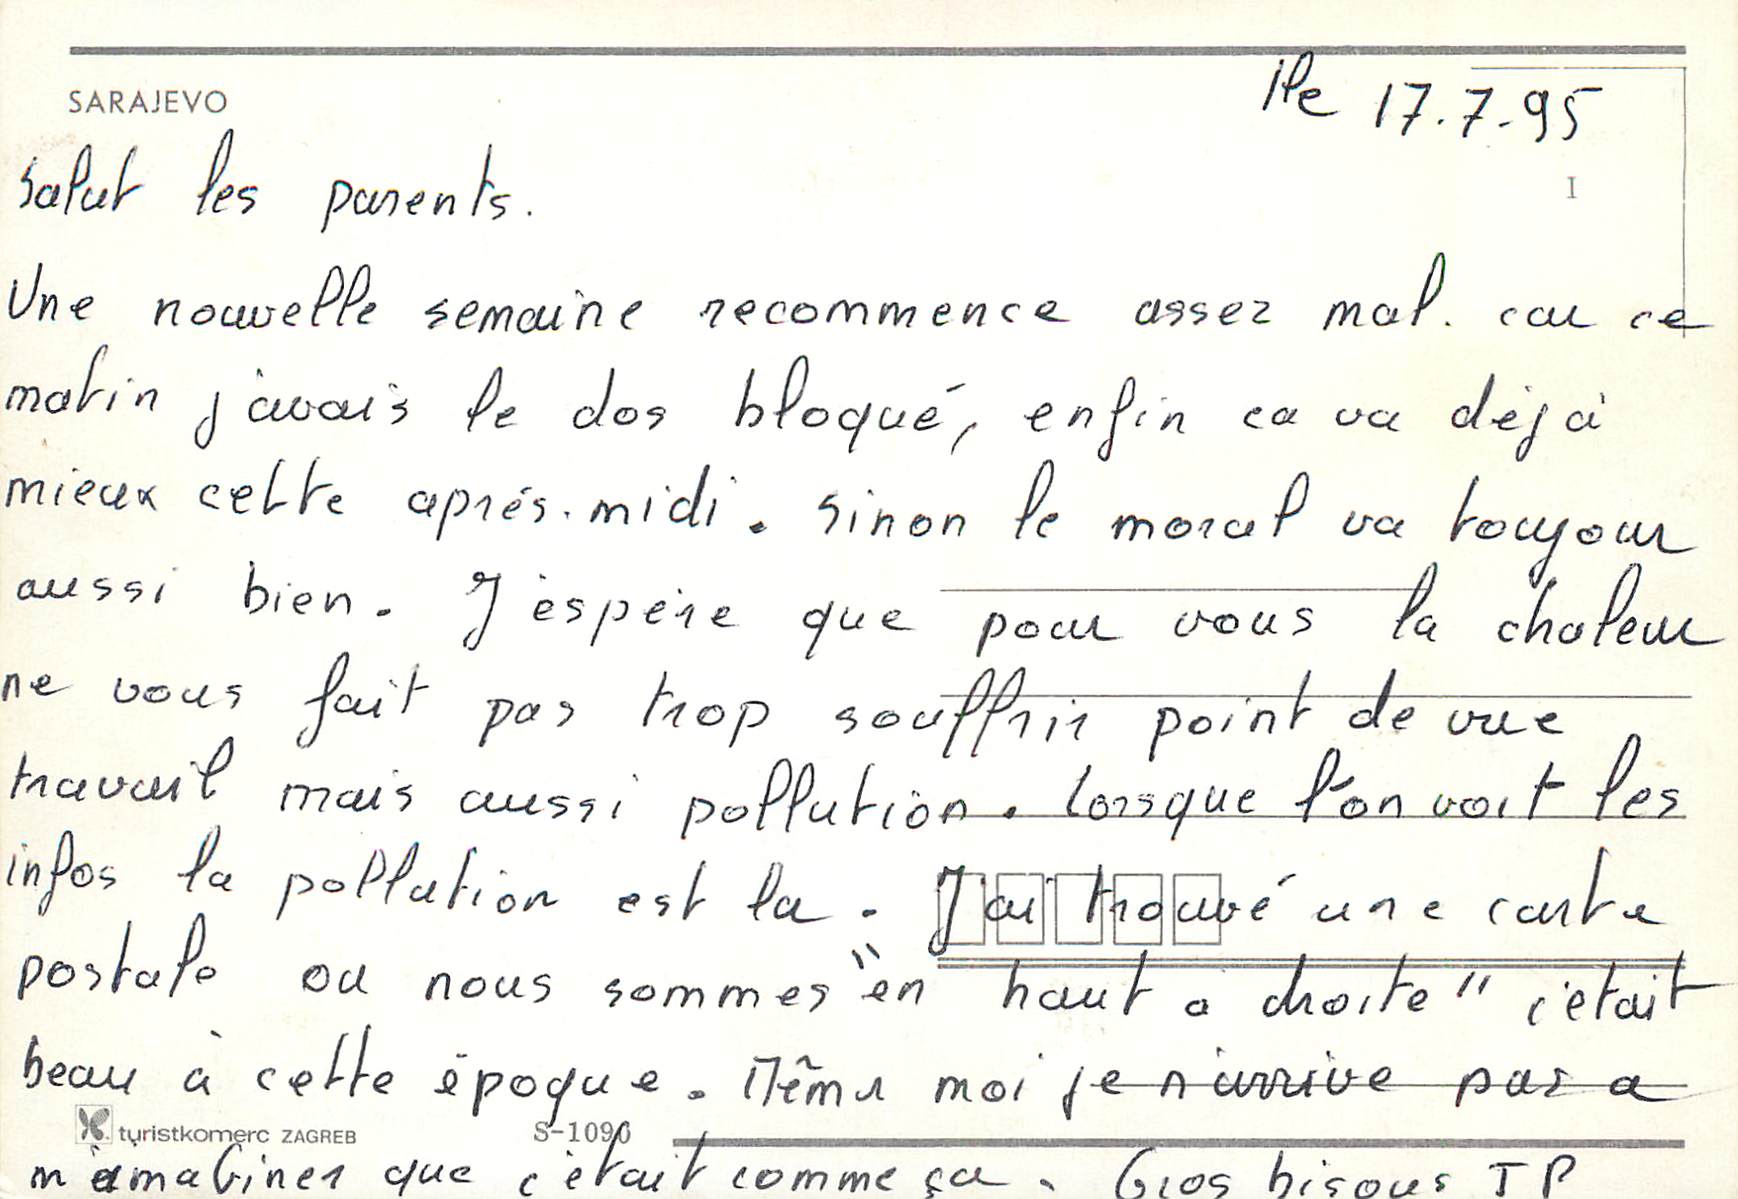 SARAJEVO
Ile 17.7.95
I
Salut les parents.
Une nouvelle semaine recommence assez mal. car ce
matin j'avais le dos bloqué, enfin ca va déjà
mieux cette aprés.midi. Sinon le moral va toujour
aussi bien. J'espére que pour vous la chaleur
ne vous fait pas trop souffrir point de vue
travail mais aussi pollution. Lorsque l'on voit les
infos la pollution est la. J'ai trouvé une carte
postale ou nous sommes "en haut a droite" c'était
beau à cette époque. Même moi je n'arrive pas a
m'amaginer que c'était comme ça. Gros bisous JP
turistkomerc ZAGREB
S-1090